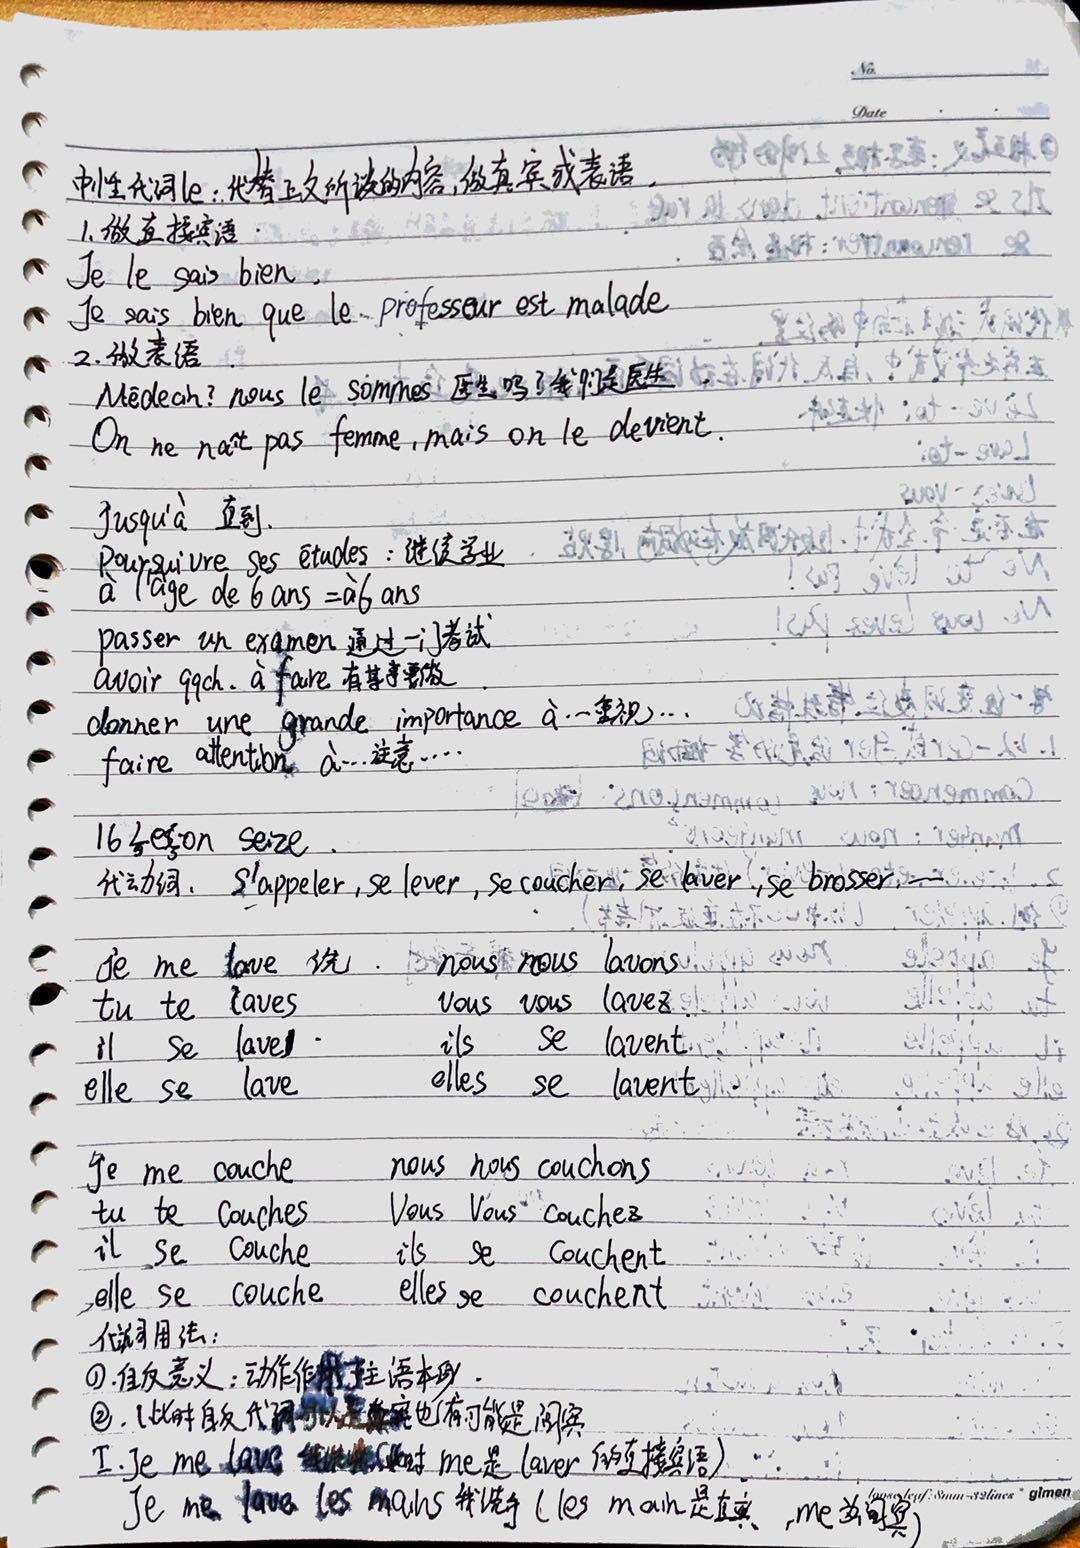 No.
Date
中性代词le：代替上文所谈的内容，做直宾或表语．
1.做直接宾语．
Je le sais bien．
Je sais bien que le professeur est malade
2.做表语
Médecin? nous le sommes 医生吗？我们是医生．
On ne naît pas femme, mais on le devient.
Jusqu'à 直到.
Poursuivre ses études：继续学业
à l'âge de 6 ans = à 6 ans
passer un examen 通过一门考试
avoir qqch. à faire 有某事要做
donner une grande importance à…重视…
faire attention à…注意…
16 Leçon seize．
代动词．S'appeler, se lever, se coucher, se laver, se brosser.……
je me lave 洗． nous nous lavons
tu te laves vous vous lavez
il se lave ils se lavent
elle se lave elles se lavent
Je me couche nous nous couchons
tu te couches Vous Vous couchez
il se couche ils se couchent
elle se couche elles se couchent
代词用法：
①.自反意义：动作作用于主语本身．
②.(此时自反代词可以是直宾也有可能是间宾
I. Je me lave (此时 me是 laver 的直接宾语)
Je me lave les mains 我洗手 ( les main 是直宾, me为间宾)
loose leaf: 8mm-32lines * glmen